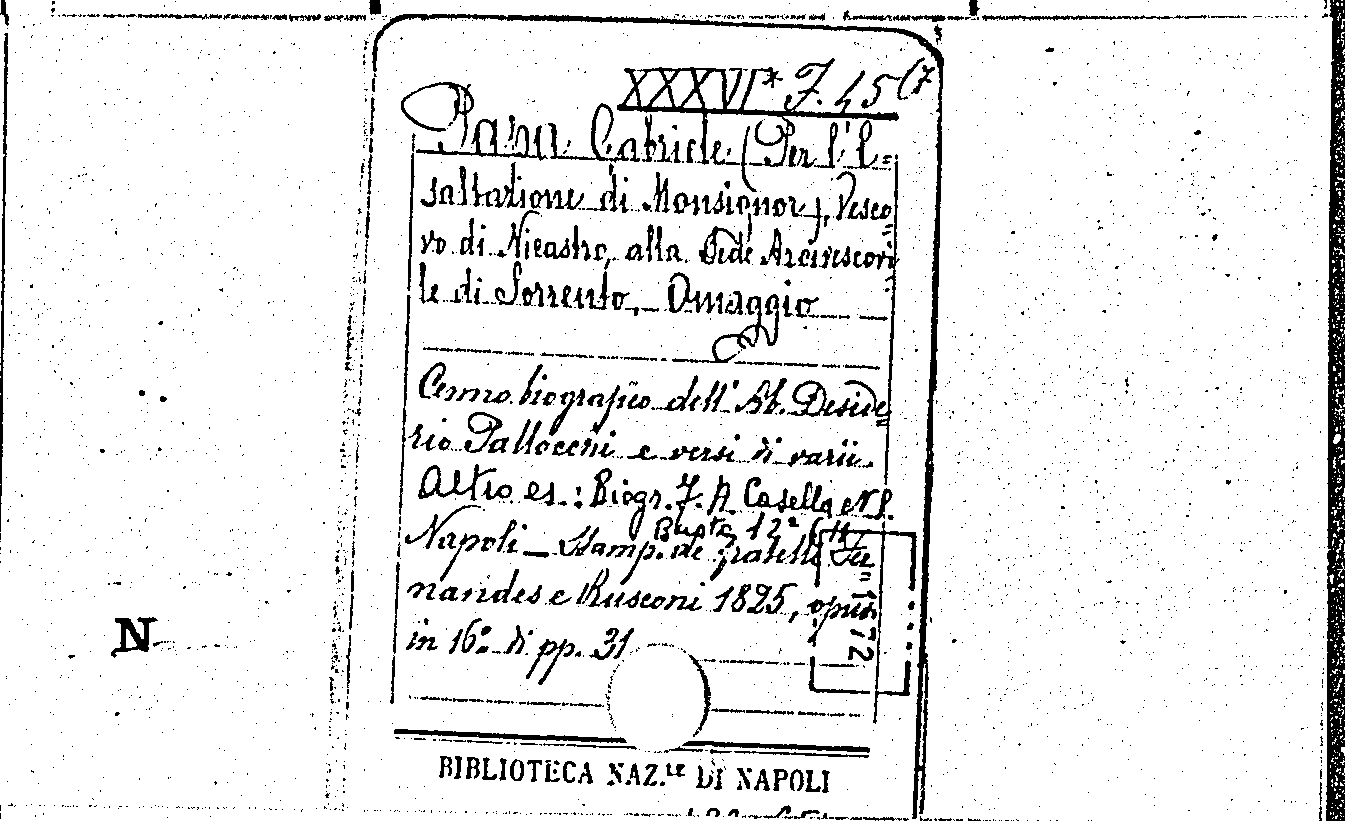 XXXVI* F. 45 (7
Papa Gabriele (Per l'E=
saltazione di Monsignor), Vesco=
vo di Nicastro, alla Sede Arcivescovi=
le di Sorrento, Omaggio
Cenno biografico dell'Ab. Deside=
rio Pallocchi e versi di varii.
Altro es.: Biogr. F. A. Casella
Busta 12ª (11)
Napoli — Stamp. de' fratelli Fer=
nandes e Rusconi 1825, opusc.
in 16º di pp. 31
172
N
BIBLIOTECA NAZ.LE DI NAPOLI